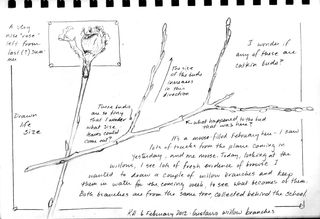 A stray
willow "rose"
left from
last (?) sum-
mer
I wonder if
any of these are
catkin buds?
The size
of the buds
increases in
this direction
These buds
are so tiny
that I wonder
what size
leaves could
come out!
what happened to the bud
that was here?
Drawn
life
size
It's a moose filled February here - I saw
lots of tracks from the plane coming in
yesterday, and one moose. Today, looking at the
willows, I see lots of fresh evidence of browse. I
wanted to draw a couple of willow branches and keep
them in water for the coming week, to see what becomes of them.
Both branches are from the same tree, collected behind the school
6 February 2012 Gustavus willow branches